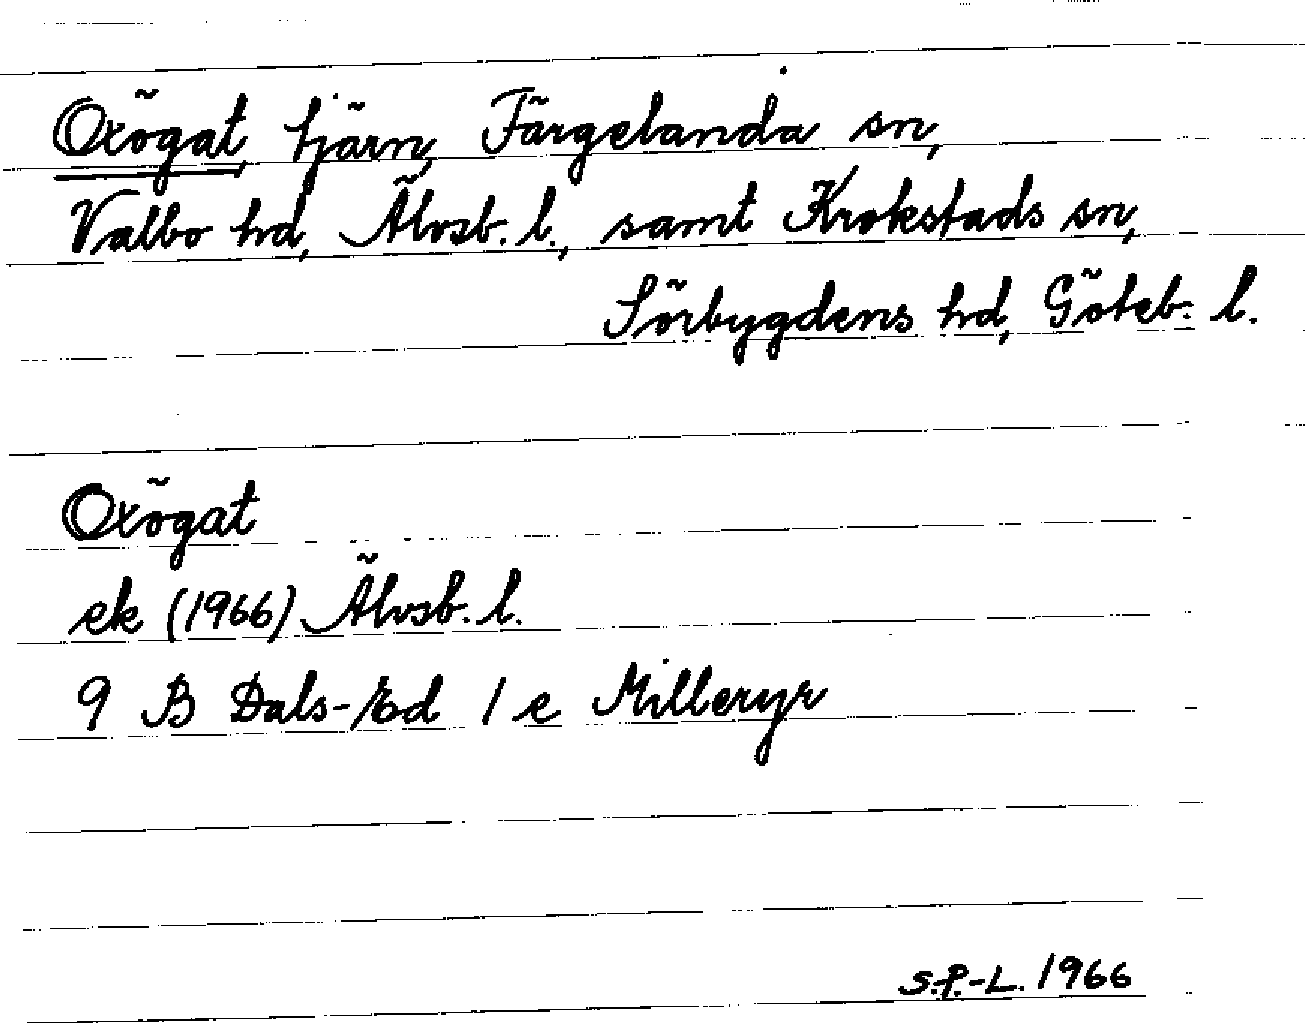 Oxögat, tjärn, Färgelanda sn,
Valbo hd, Älvsb. l., samt Krokstads sn,
Sörbygdens hd, Göteb. l.
Oxögat
ek (1966) Älvsb. l.
9 B Dals-Ed 1 e Milleryr
S.P.-L. 1966